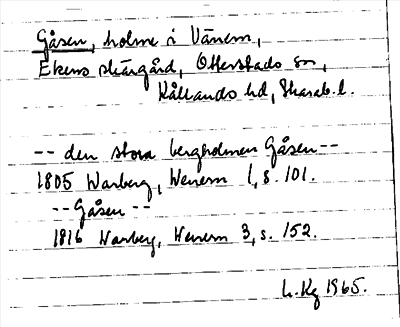 Gåsen, holme i Vänern,
Ekens skärgård, Otterstads sn,
Kållands hd, Skarab.l.
-- den stora bergholmen Gåsen --
1805 Warberg, Wenern 1, s. 101.
-- Gåsen --
1816 Warberg, Wenern 3, s. 152.
L. Kg 1965.